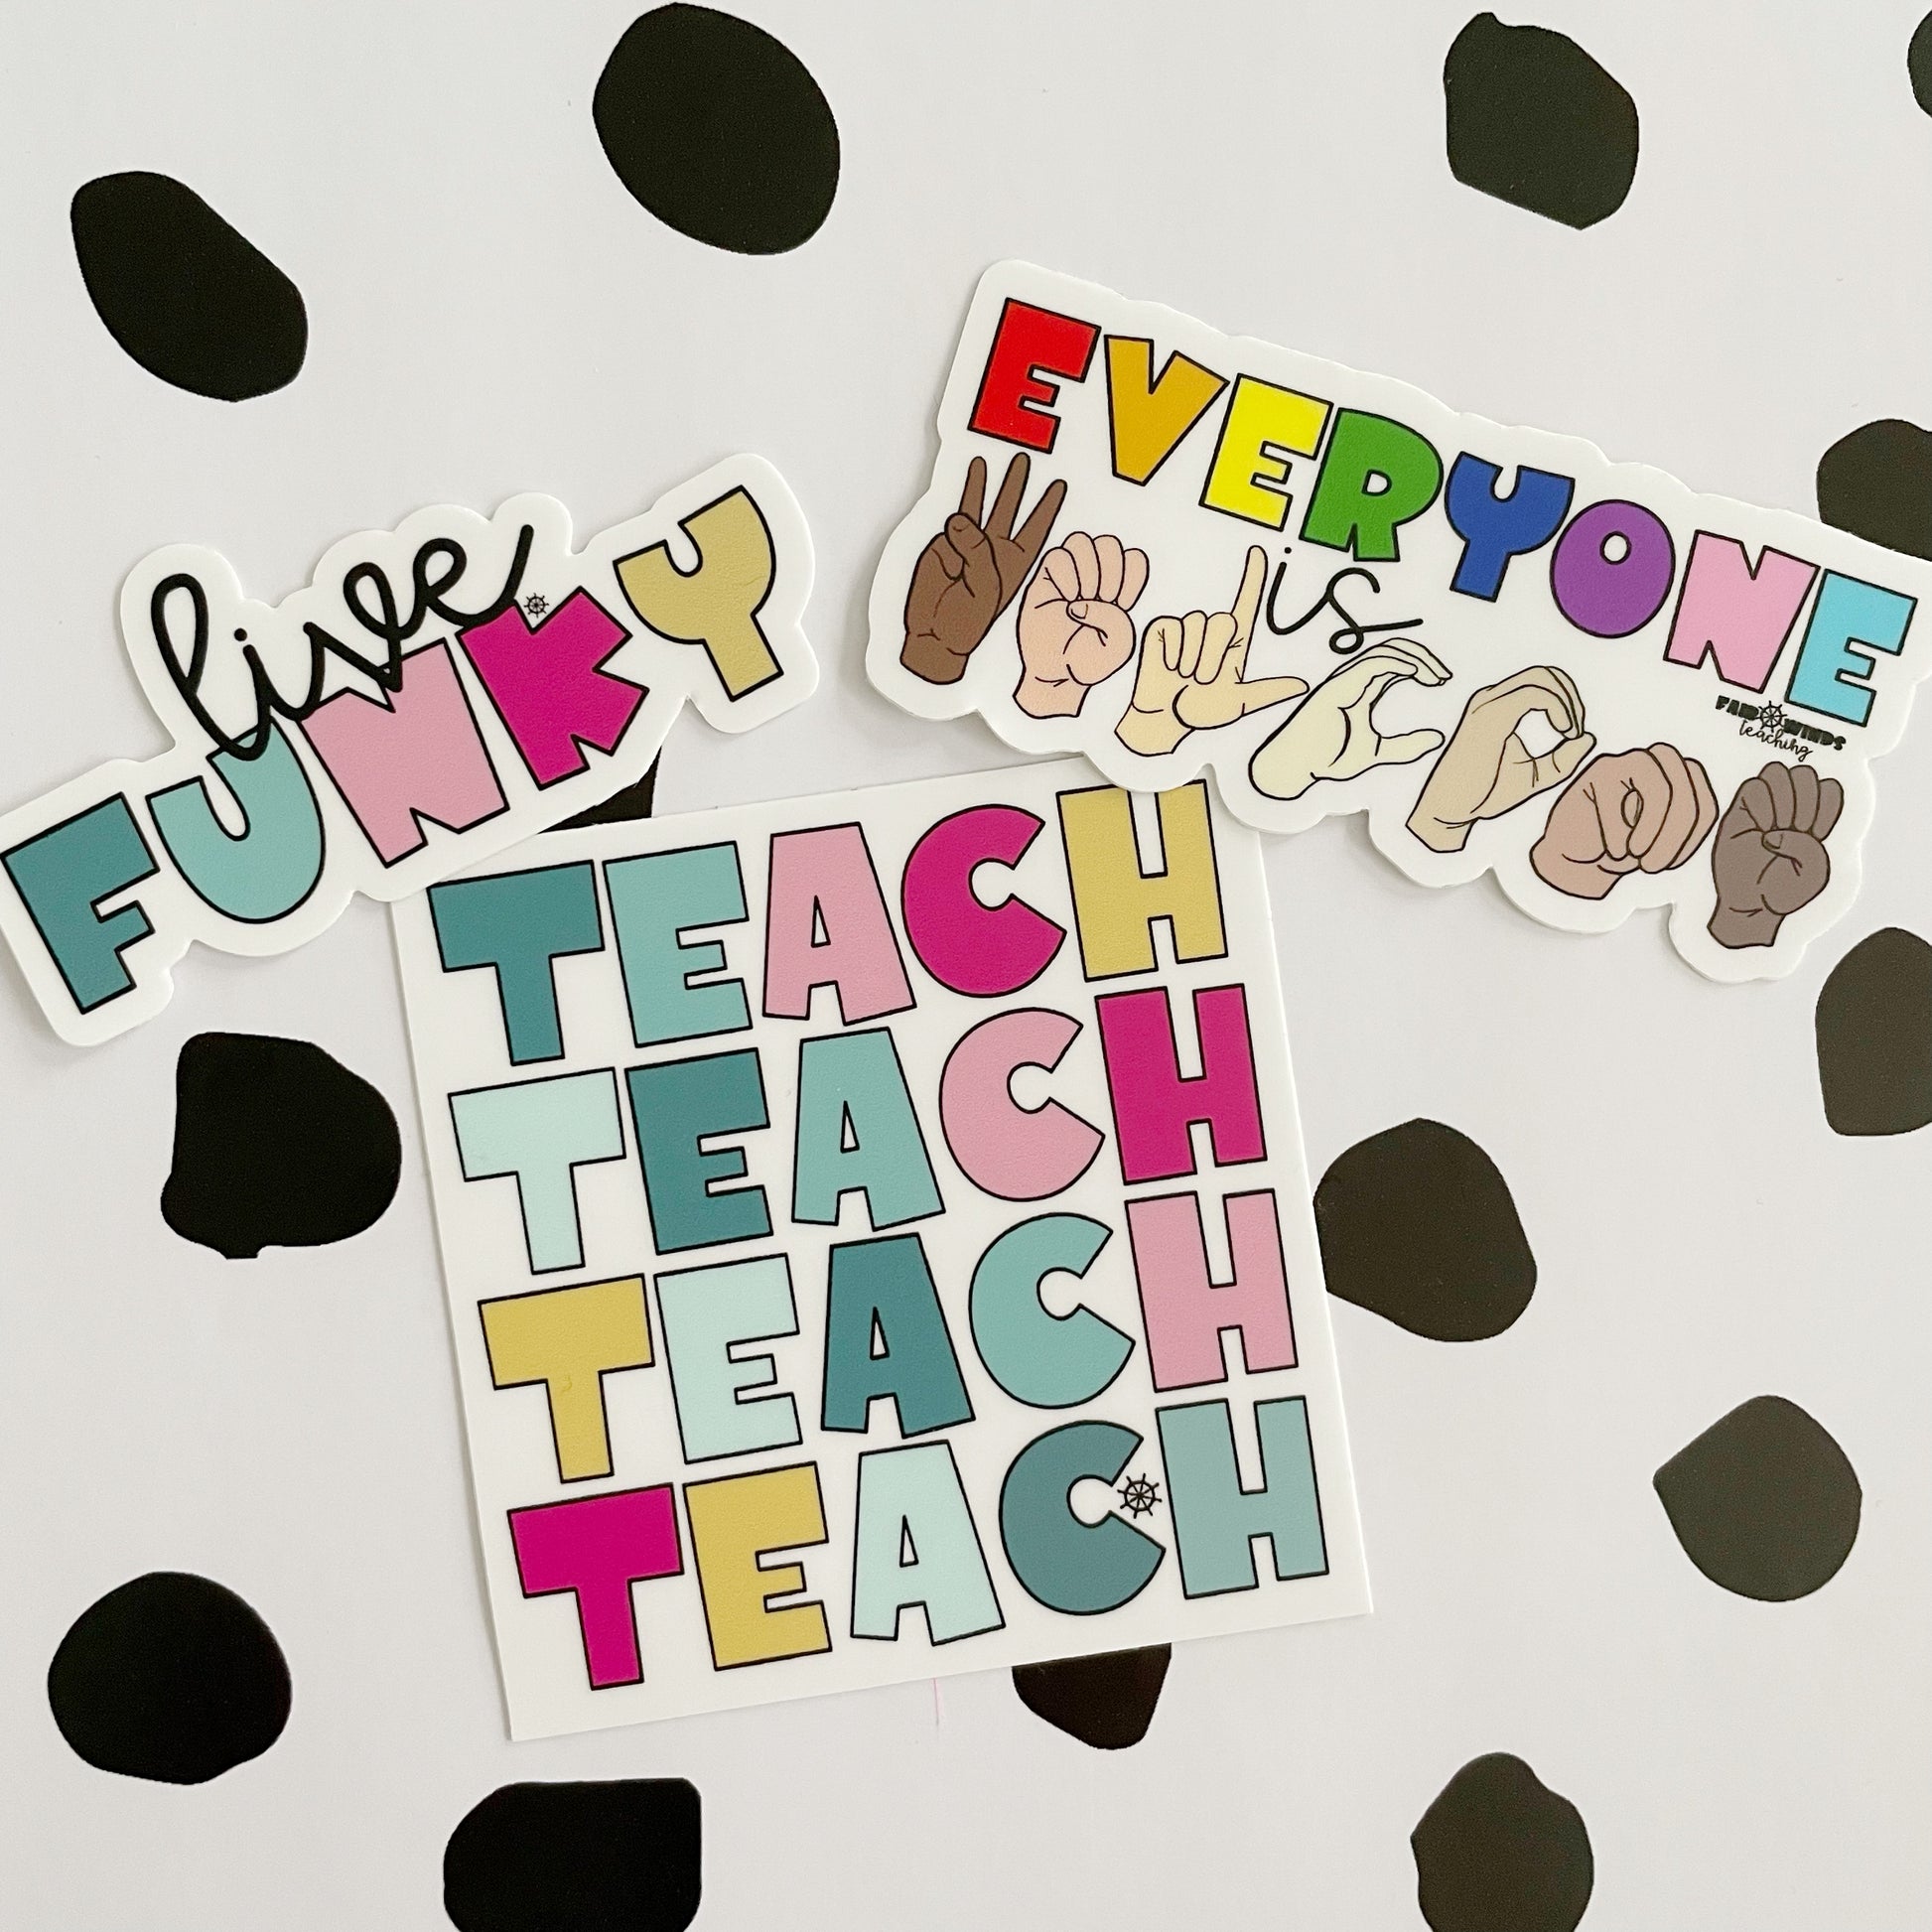 live
FUNKY
EVERYONE
is
FAIR WINDS
teaching
TEACH
TEACH
TEACH
TEACH